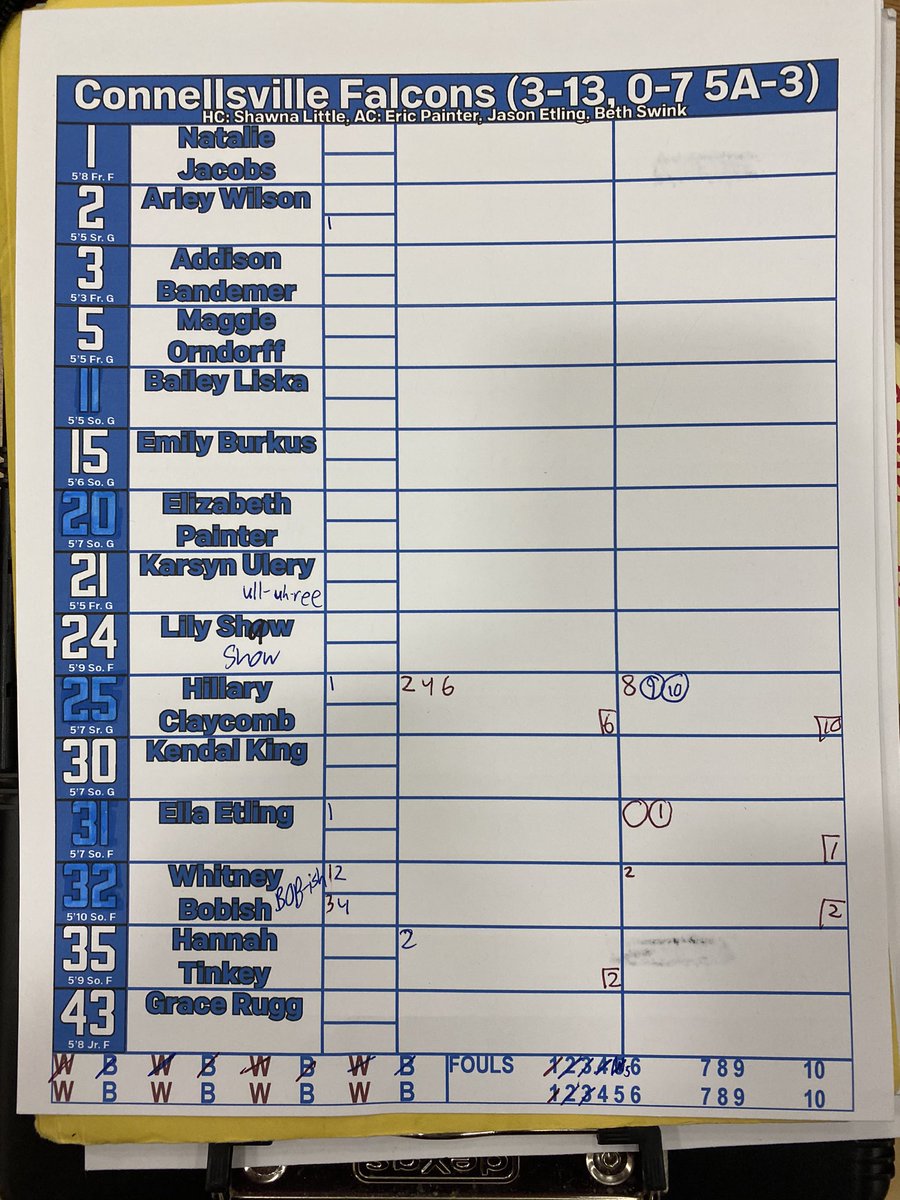 Connellsville Falcons (3-13, 0-7 5A-3)
HC: Shawna Little, AC: Eric Painter, Jason Etling, Beth Swink
1 Natalie
5'8 Fr. F Jacobs
2 Arley Wilson
5'5 Sr. G 1
3 Addison
5'3 Fr. G Bandemer
5 Maggie
5'5 Fr. G Orndorff
11 Bailey Liska
5'5 So. G
15 Emily Burkus
5'6 So. G
20 Elizabeth
5'7 So. G Painter
21 Karsyn Ulery
5'5 Fr. G ull-uh-ree
24 Lily Show
5'9 So. F Show
25 Hillary 1 2 4 6 8 9 10
5'7 Sr. G Claycomb 6 10
30 Kendal King
5'7 So. G
31 Ella Etling 1 1
5'7 So. F 1
32 Whitney BOB-ish 12 2
5'10 So. F Bobish 34 2
35 Hannah 2
5'9 So. F Tinkey 2
43 Grace Rugg
5'8 Jr. F
W B W B W B W B FOULS 1 2 3 4 5 6 7 8 9 10
W B W B W B W B 1 2 3 4 5 6 7 8 9 10